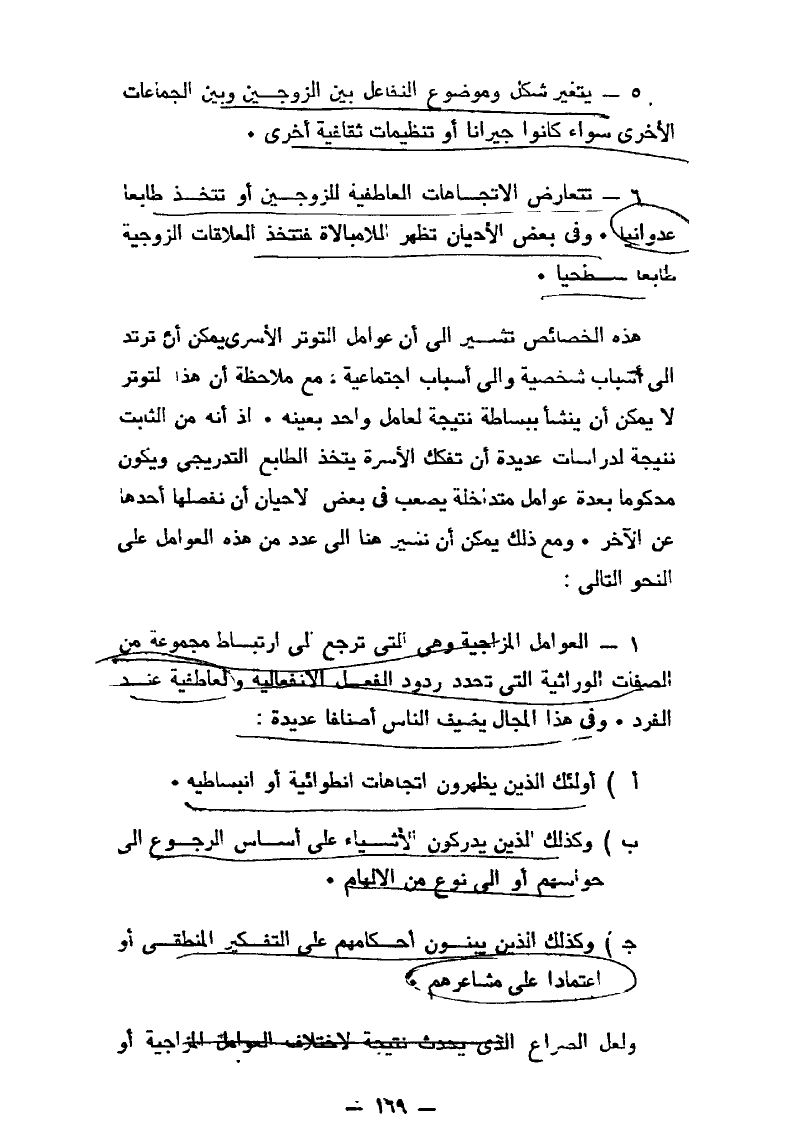 ٥ ــ يتغير شكل وموضوع التفاعل بين الزوجــين وبين الجماعات
الأخرى سواء كانوا جيرانا أو تنظيمات ثقافية أخرى ٠
٦ ــ تتعارض الاتجــاهات العاطفية للزوجــين أو تتخــذ طابعا
عدوانيا ٠ وفى بعض الأحيان تظهر اللامبالاة فتتخذ العلاقات الزوجية
طابعا ســطحيا ٠
هذه الخصائص تشــير الى أن عوامل التوتر الأسرى يمكن أن ترتد
الى أسباب شخصية والى أسباب اجتماعية ، مع ملاحظة أن هذا لتوتر
لا يمكن أن ينشأ ببساطة نتيجة لعامل واحد بعينه ٠ اذ أنه من الثابت
نتيجة لدراسات عديدة أن تفكك الأسرة يتخذ الطابع التدريجى ويكون
محكوما بعدة عوامل متداخلة يصعب فى بعض لاحيان أن نفصلها أحدها
عن الآخر ٠ ومع ذلك يمكن أن نشير هنا الى عدد من هذه العوامل على
النحو التالى :
١ ــ العوامل المزاجية وهى التى ترجع الى ارتبــاط مجموعة من
الصفات الوراثية التى تحدد ردود الفعــل الانفعالية والعاطفية عنــد
الفرد ٠ وفى هذا المجال يضيف الناس أصنافا عديدة :
أ ) أولئك الذين يظهرون اتجاهات انطوائية أو انبساطيه ٠
ب ) وكذلك الذين يدركون الأشــياء على أساس الرجــوع الى
حواسهم أو الى نوع من الالهام ٠
جـ ) وكذلك الذين يبنــون أحــكامهم على التفــكير المنطقــى أو
اعتمادا على مشاعرهم ٠
ولعل الصراع الذى يحدث نتيجة لاختلاف العوامل المزاجية أو
ــ ١٦٩ ــ